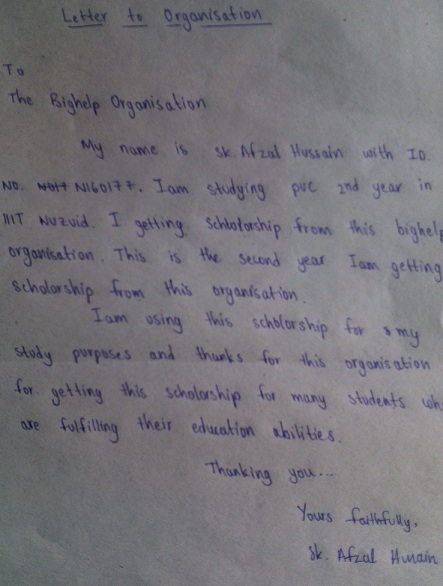 Letter to Organisation
To
The Bighelp Organisation
My name is Sk. Afzal Hussain with ID
NO. N160177. Iam studying puc 2nd year in
IIIT Nuzvid. I getting Schlolorship from this bighelp
organisation. This is the second year Iam getting
scholorship from this organisation.
Iam using this scholorship for my
study purposes and thanks for this organisation
for getting this scholorship for many students wh
are fulfilling their education abilities.
Thanking you...
Yours faithfully,
Sk. Afzal Hussain